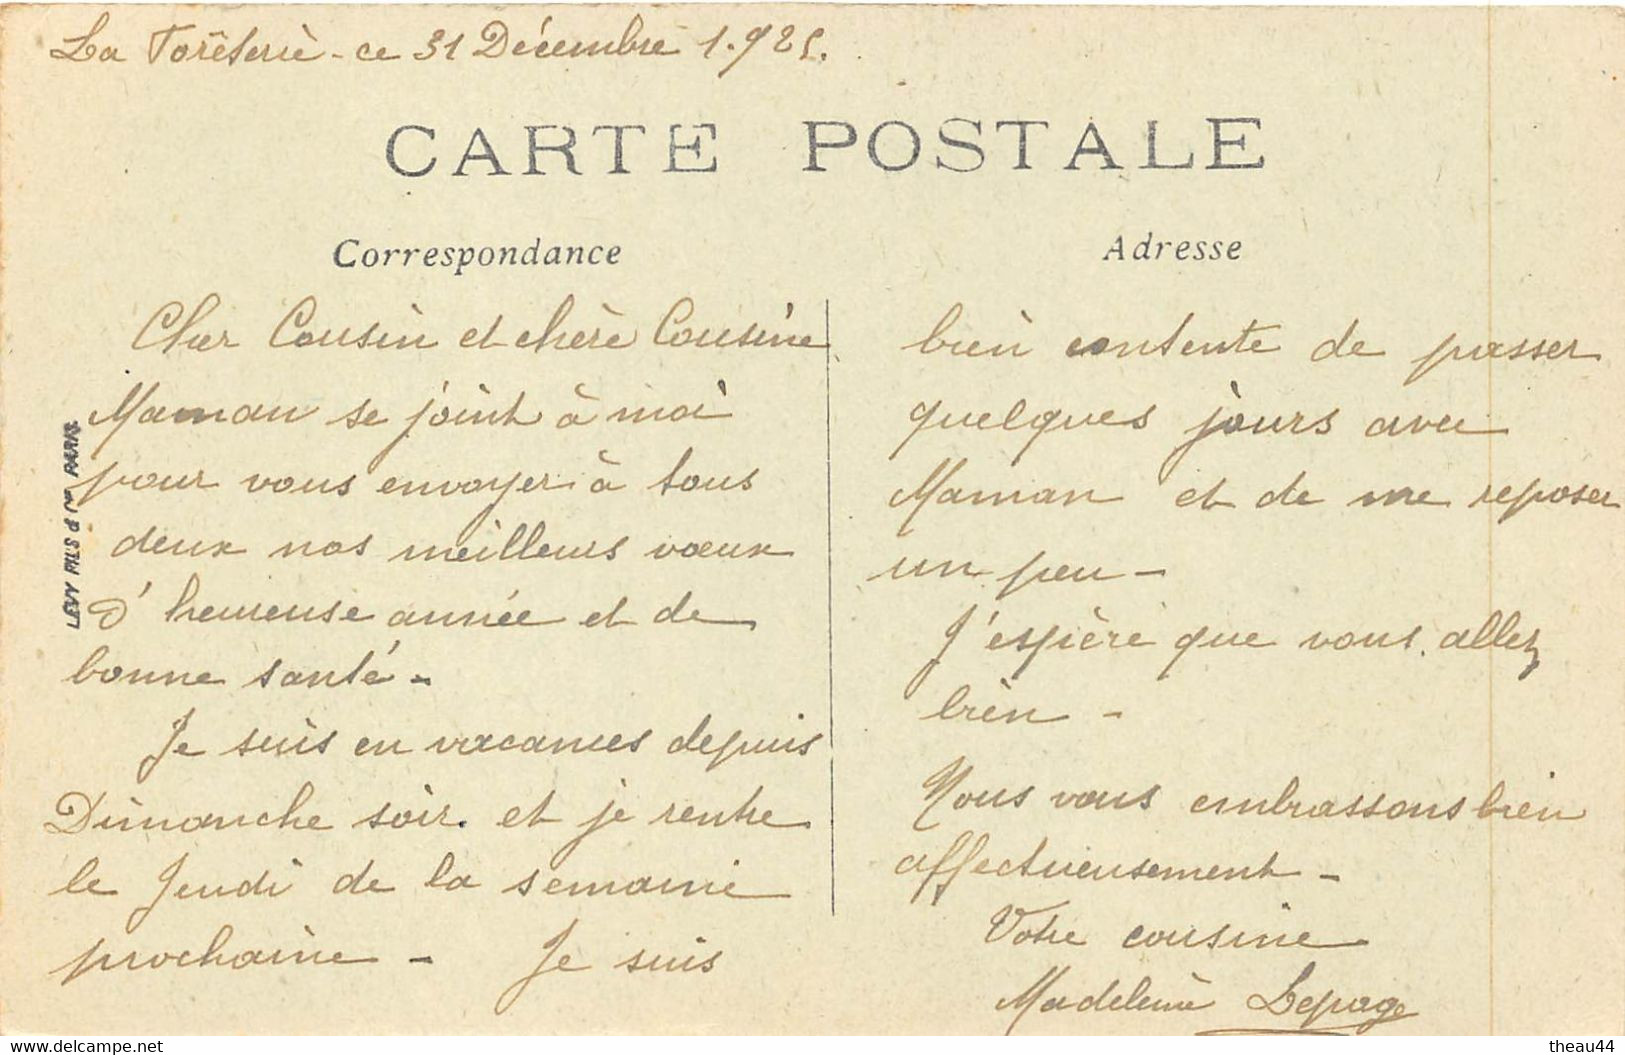 La Forêterie - ce 31 Décembre 1.925.
CARTE POSTALE
Correspondance
Cher Cousin et chère Cousine
Maman se joint à moi
pour vous envoyer à tous
deux nos meilleurs vœux
d'heureuse année et de
bonne santé -
Je suis en vacances depuis
Dimanche soir. et je rentre
le Jeudi de la semaine
prochaine - Je suis
Adresse
bien contente de passer
quelques jours avec
Maman et de me reposer
un peu -
J'espère que vous allez
bien -
Nous vous embrassons bien
affectueusement -
Votre cousine
Madeleine Lepage
LÉVY FILS & Cie PARIS
www.delcampe.net
theau44